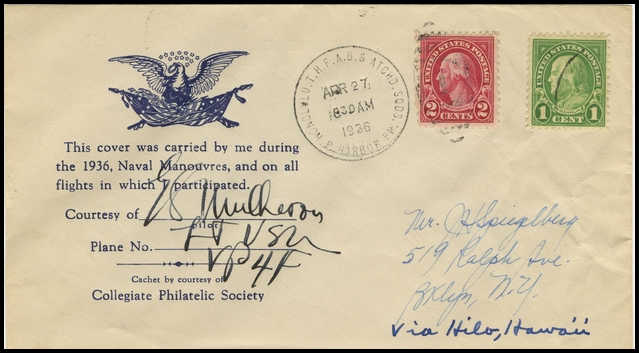 This cover was carried by me during
the 1936, Naval Manouvres, and on all
flights in which I participated.
Courtesy of
Mulheron
pilot
Lt USN
Plane No.
VP 4F
Cachet by courtesy of
Collegiate Philatelic Society
HONOLULU, T.H. F.A.B. & ATCHD SQDS.
P. HARBOR BR.
APR 27
1936
UNITED STATES POSTAGE
2 CENTS 2
UNITED STATES POSTAGE
1 CENT 1
Mr. Spiegelberg
519 Ralph Ave.
Bklyn, N.Y.
Via Hilo, Hawaii